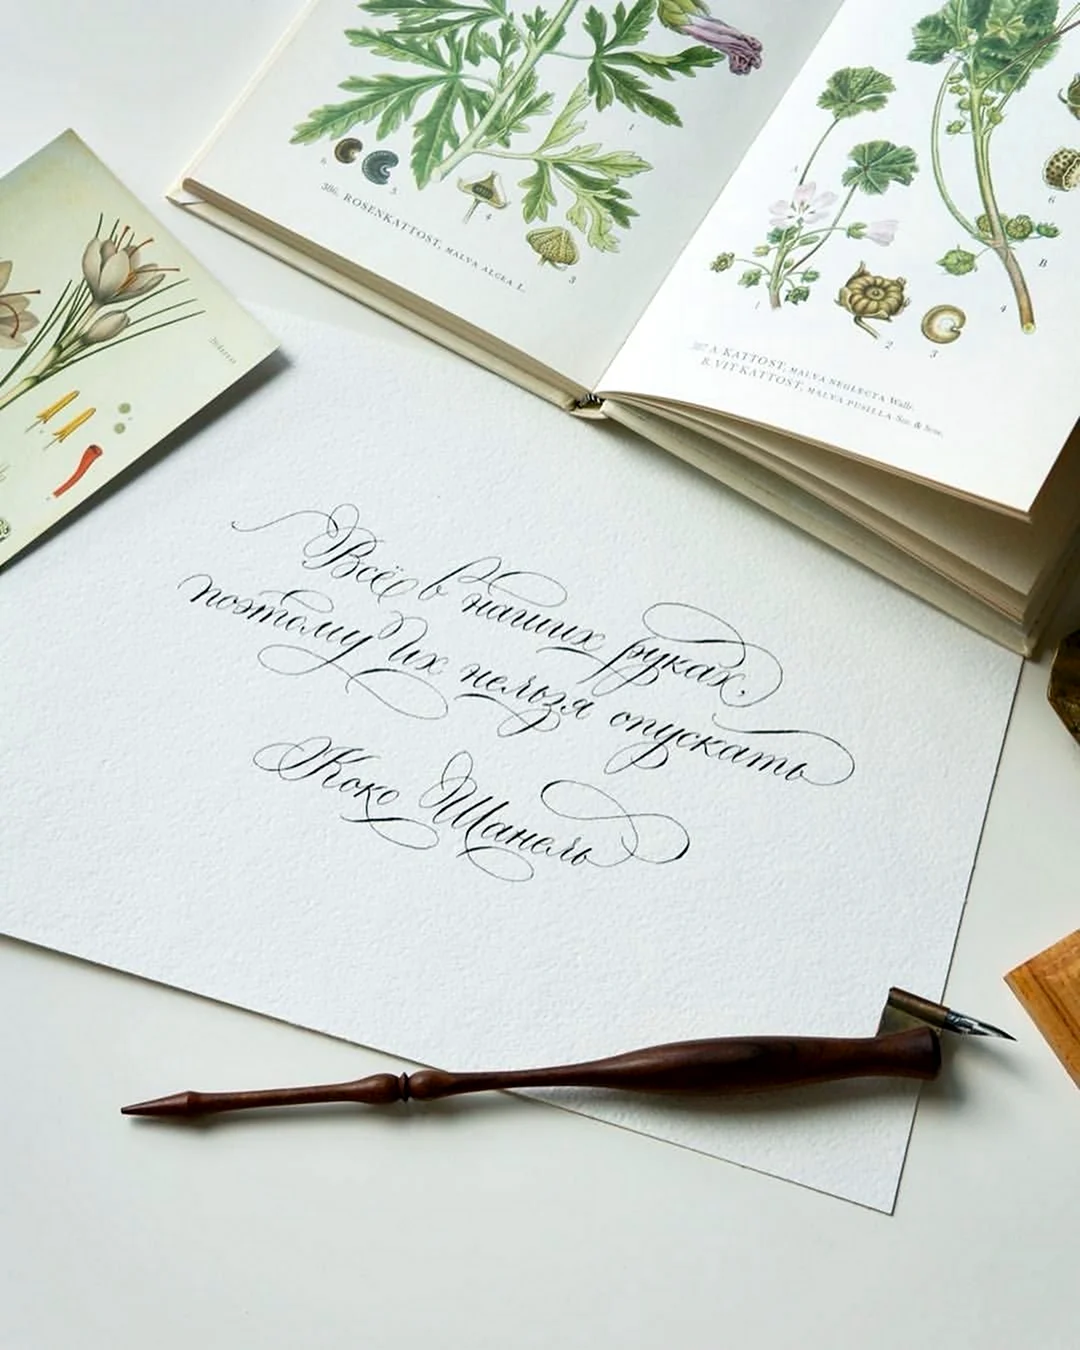 386. ROSENKATTOST, MALVA ALCEA L.
387 A. KATTOST, MALVA NEGLECTA Wallr.
B. VIT KATTOST, MALVA PUSILLA Sm. & Sow.
Всё в наших руках,
поэтому их нельзя опускать
Коко Шанель